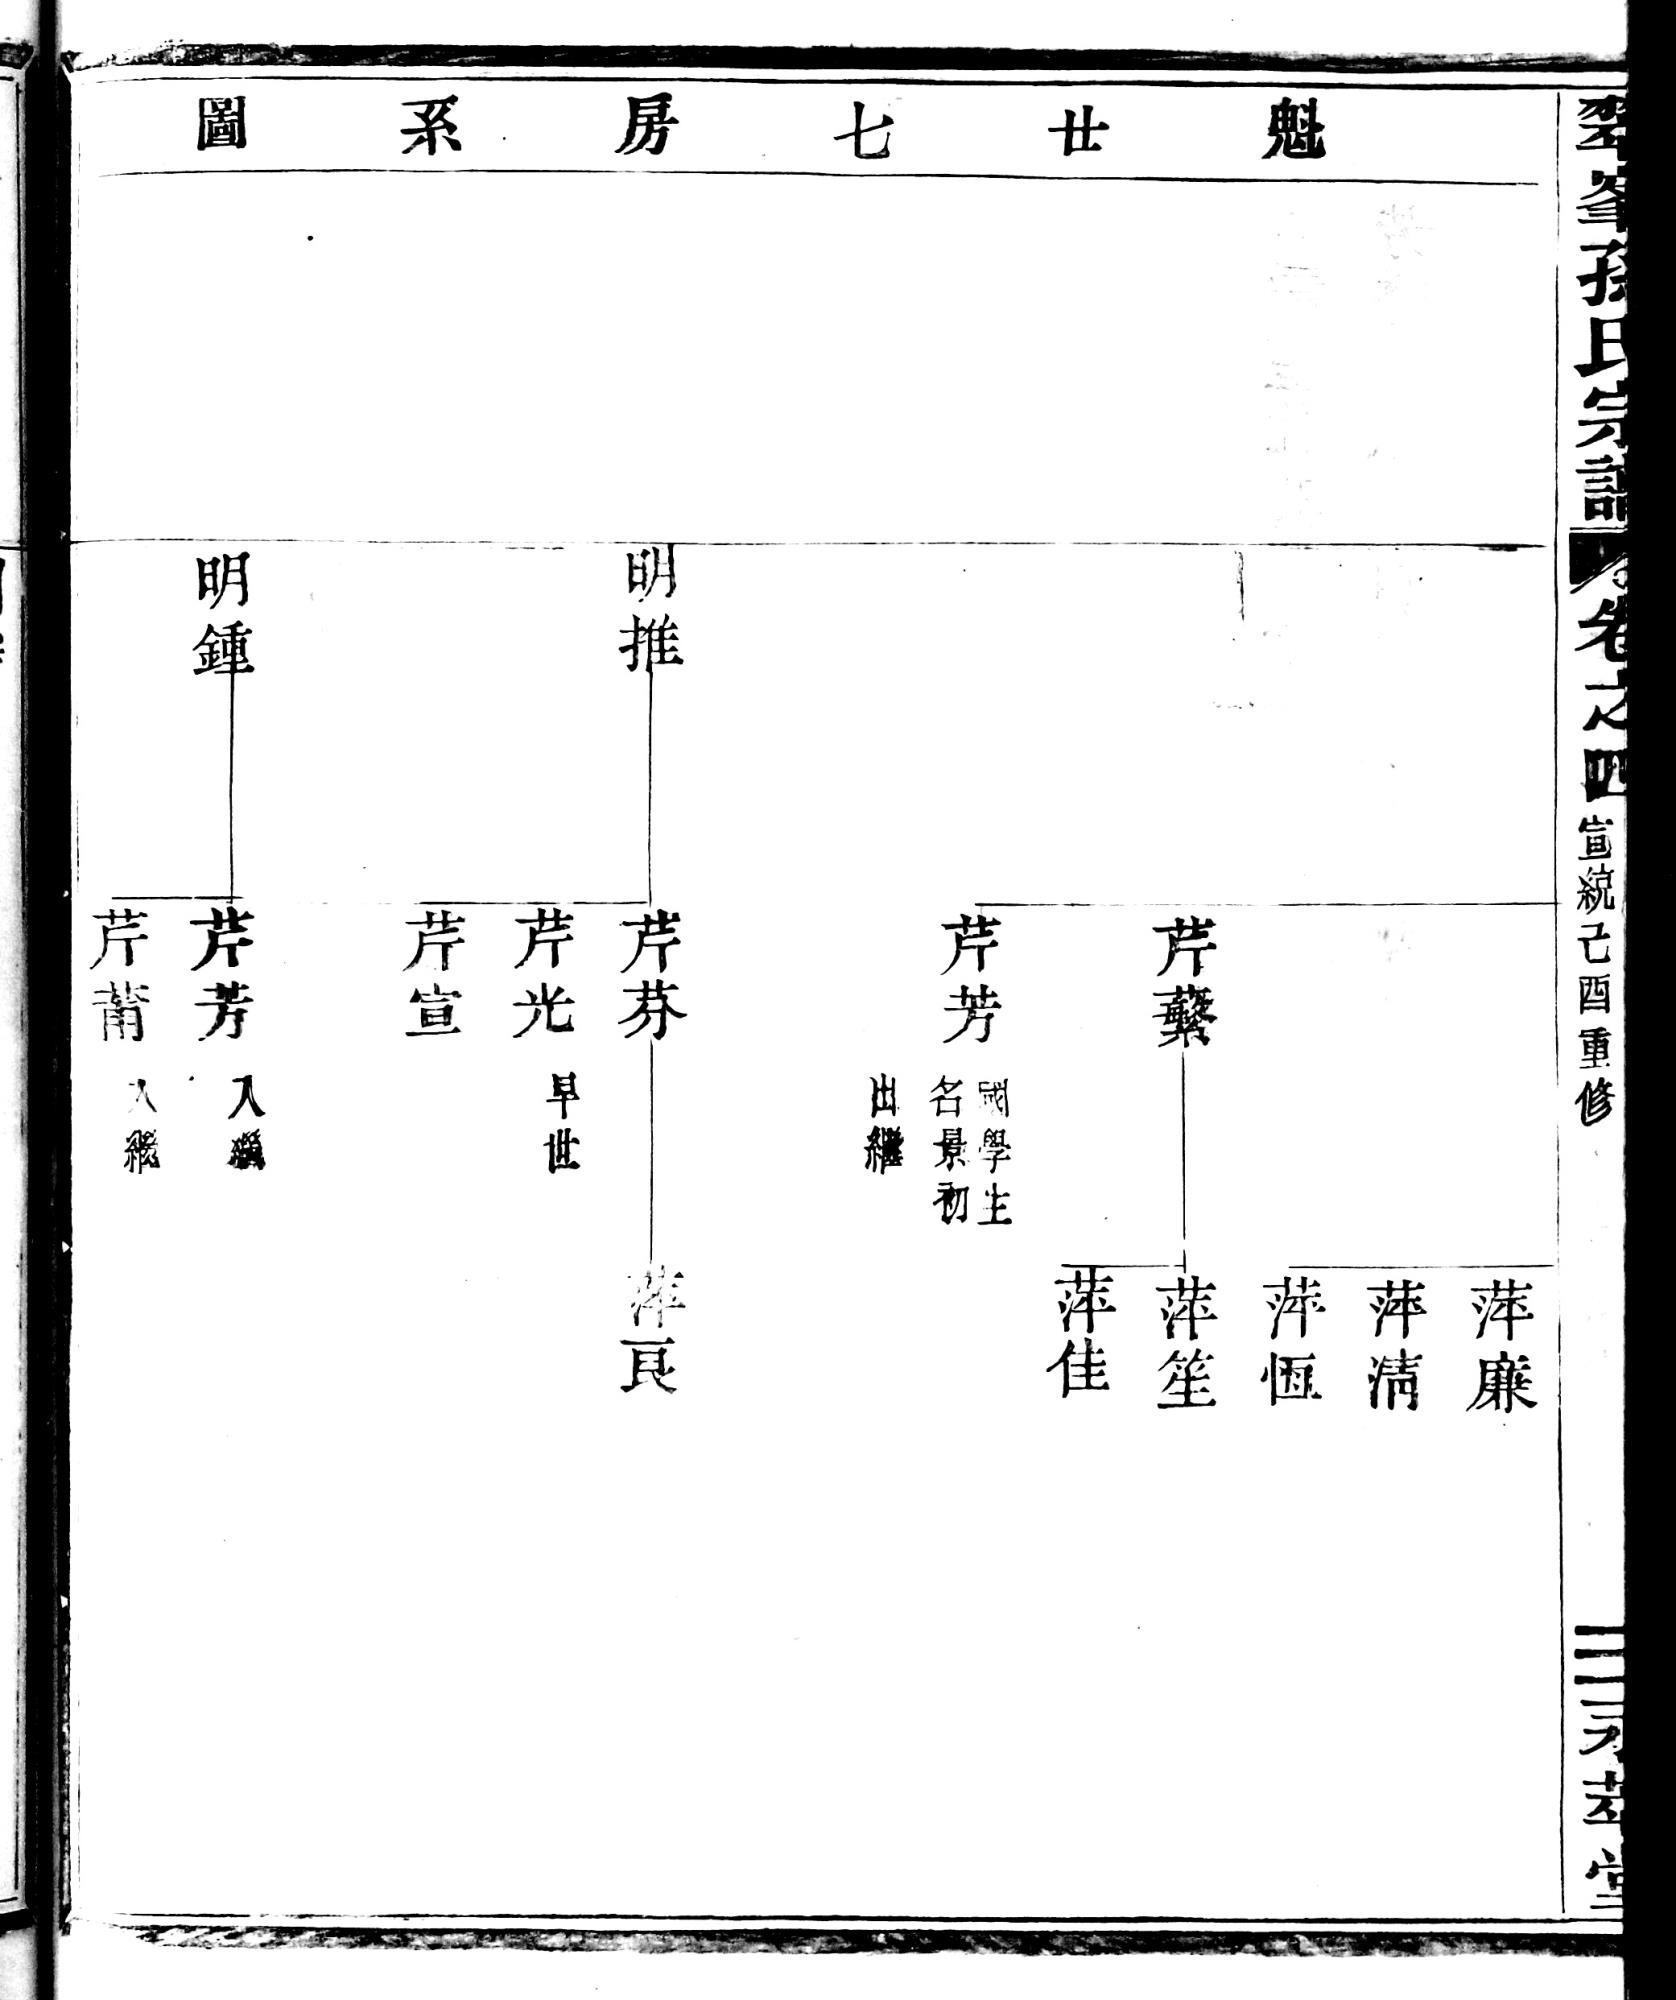 翠峯孫氏宗譜
卷之四
宣統己酉重修
永萃堂
魁廿七房系圖
明推
明鍾
芹蘩
芹芳
國學生
名景初
出繼
芹芬
芹光
早世
芹宣
芹芳
入繼
芹莆
入繼
萍廉
萍清
萍恆
萍笙
萍佳
萍良